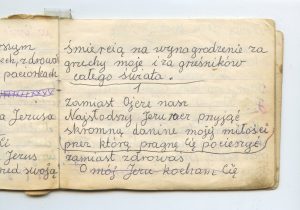 rszym
ech, z drowa
paciorkach
Jerusa
Jerus
red swoją
śmiercią na wynagrodzenie za
grzechy moje i za grzeszników
całego świata.
1
Zamiast Ojcze nasz
Najsłodszy Jezu racz przyjąć
skromną daninę mojej miłości
przez którą pragnę Cię pocieszyć
zamiast zdrowaś
O mój Jezu kocham Cię